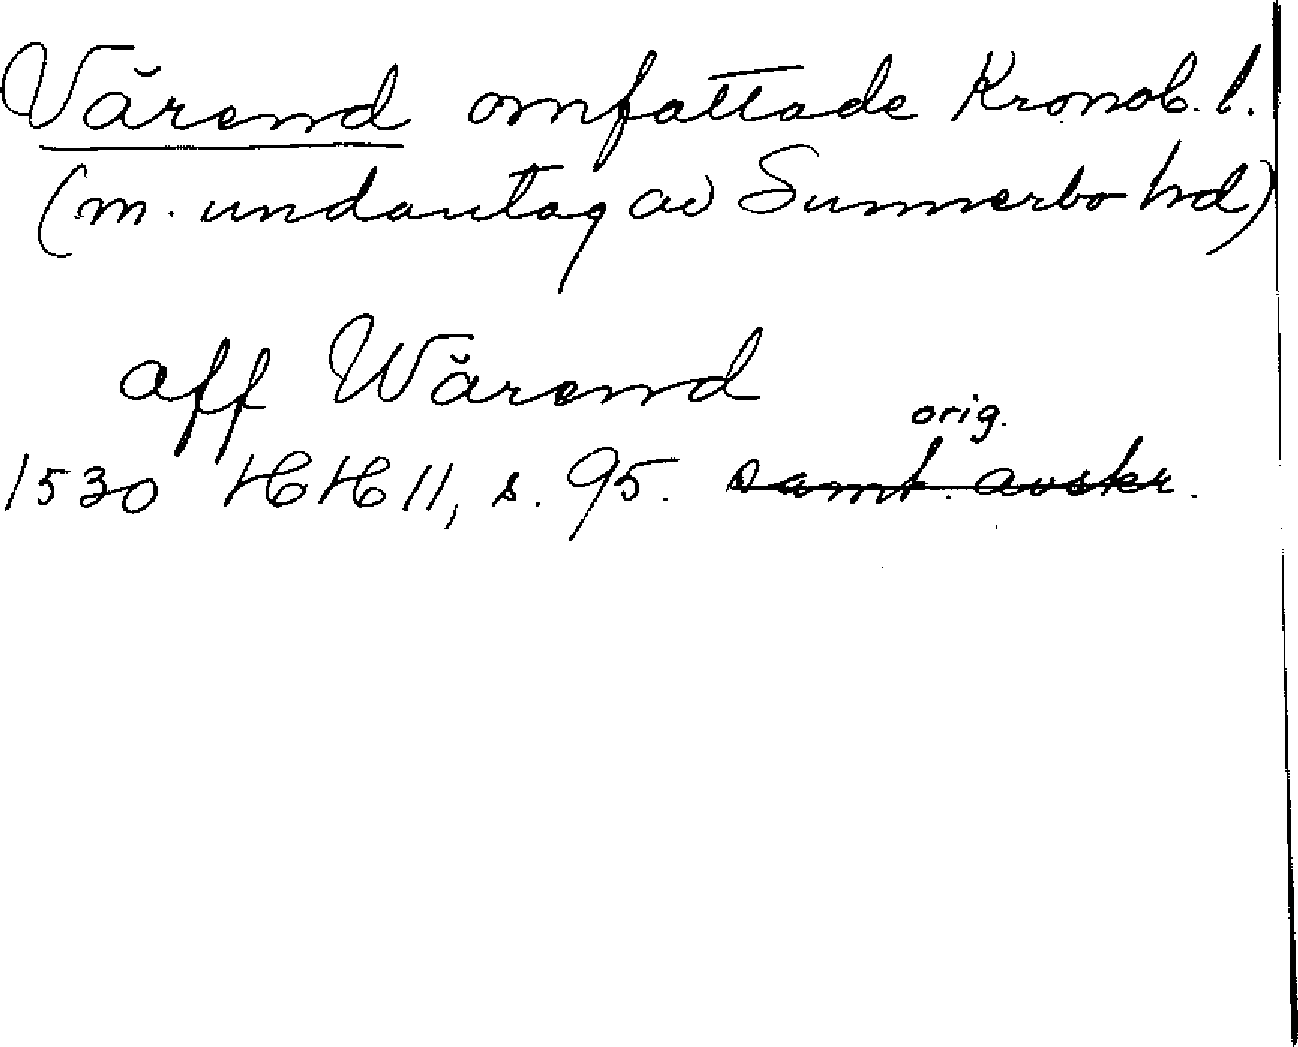 Värend omfattade Kronob. l.
(m. undantag av Sunnerbo hd)
aff Wärend
orig.
1530 HH 11, s. 95. samt. avskr.